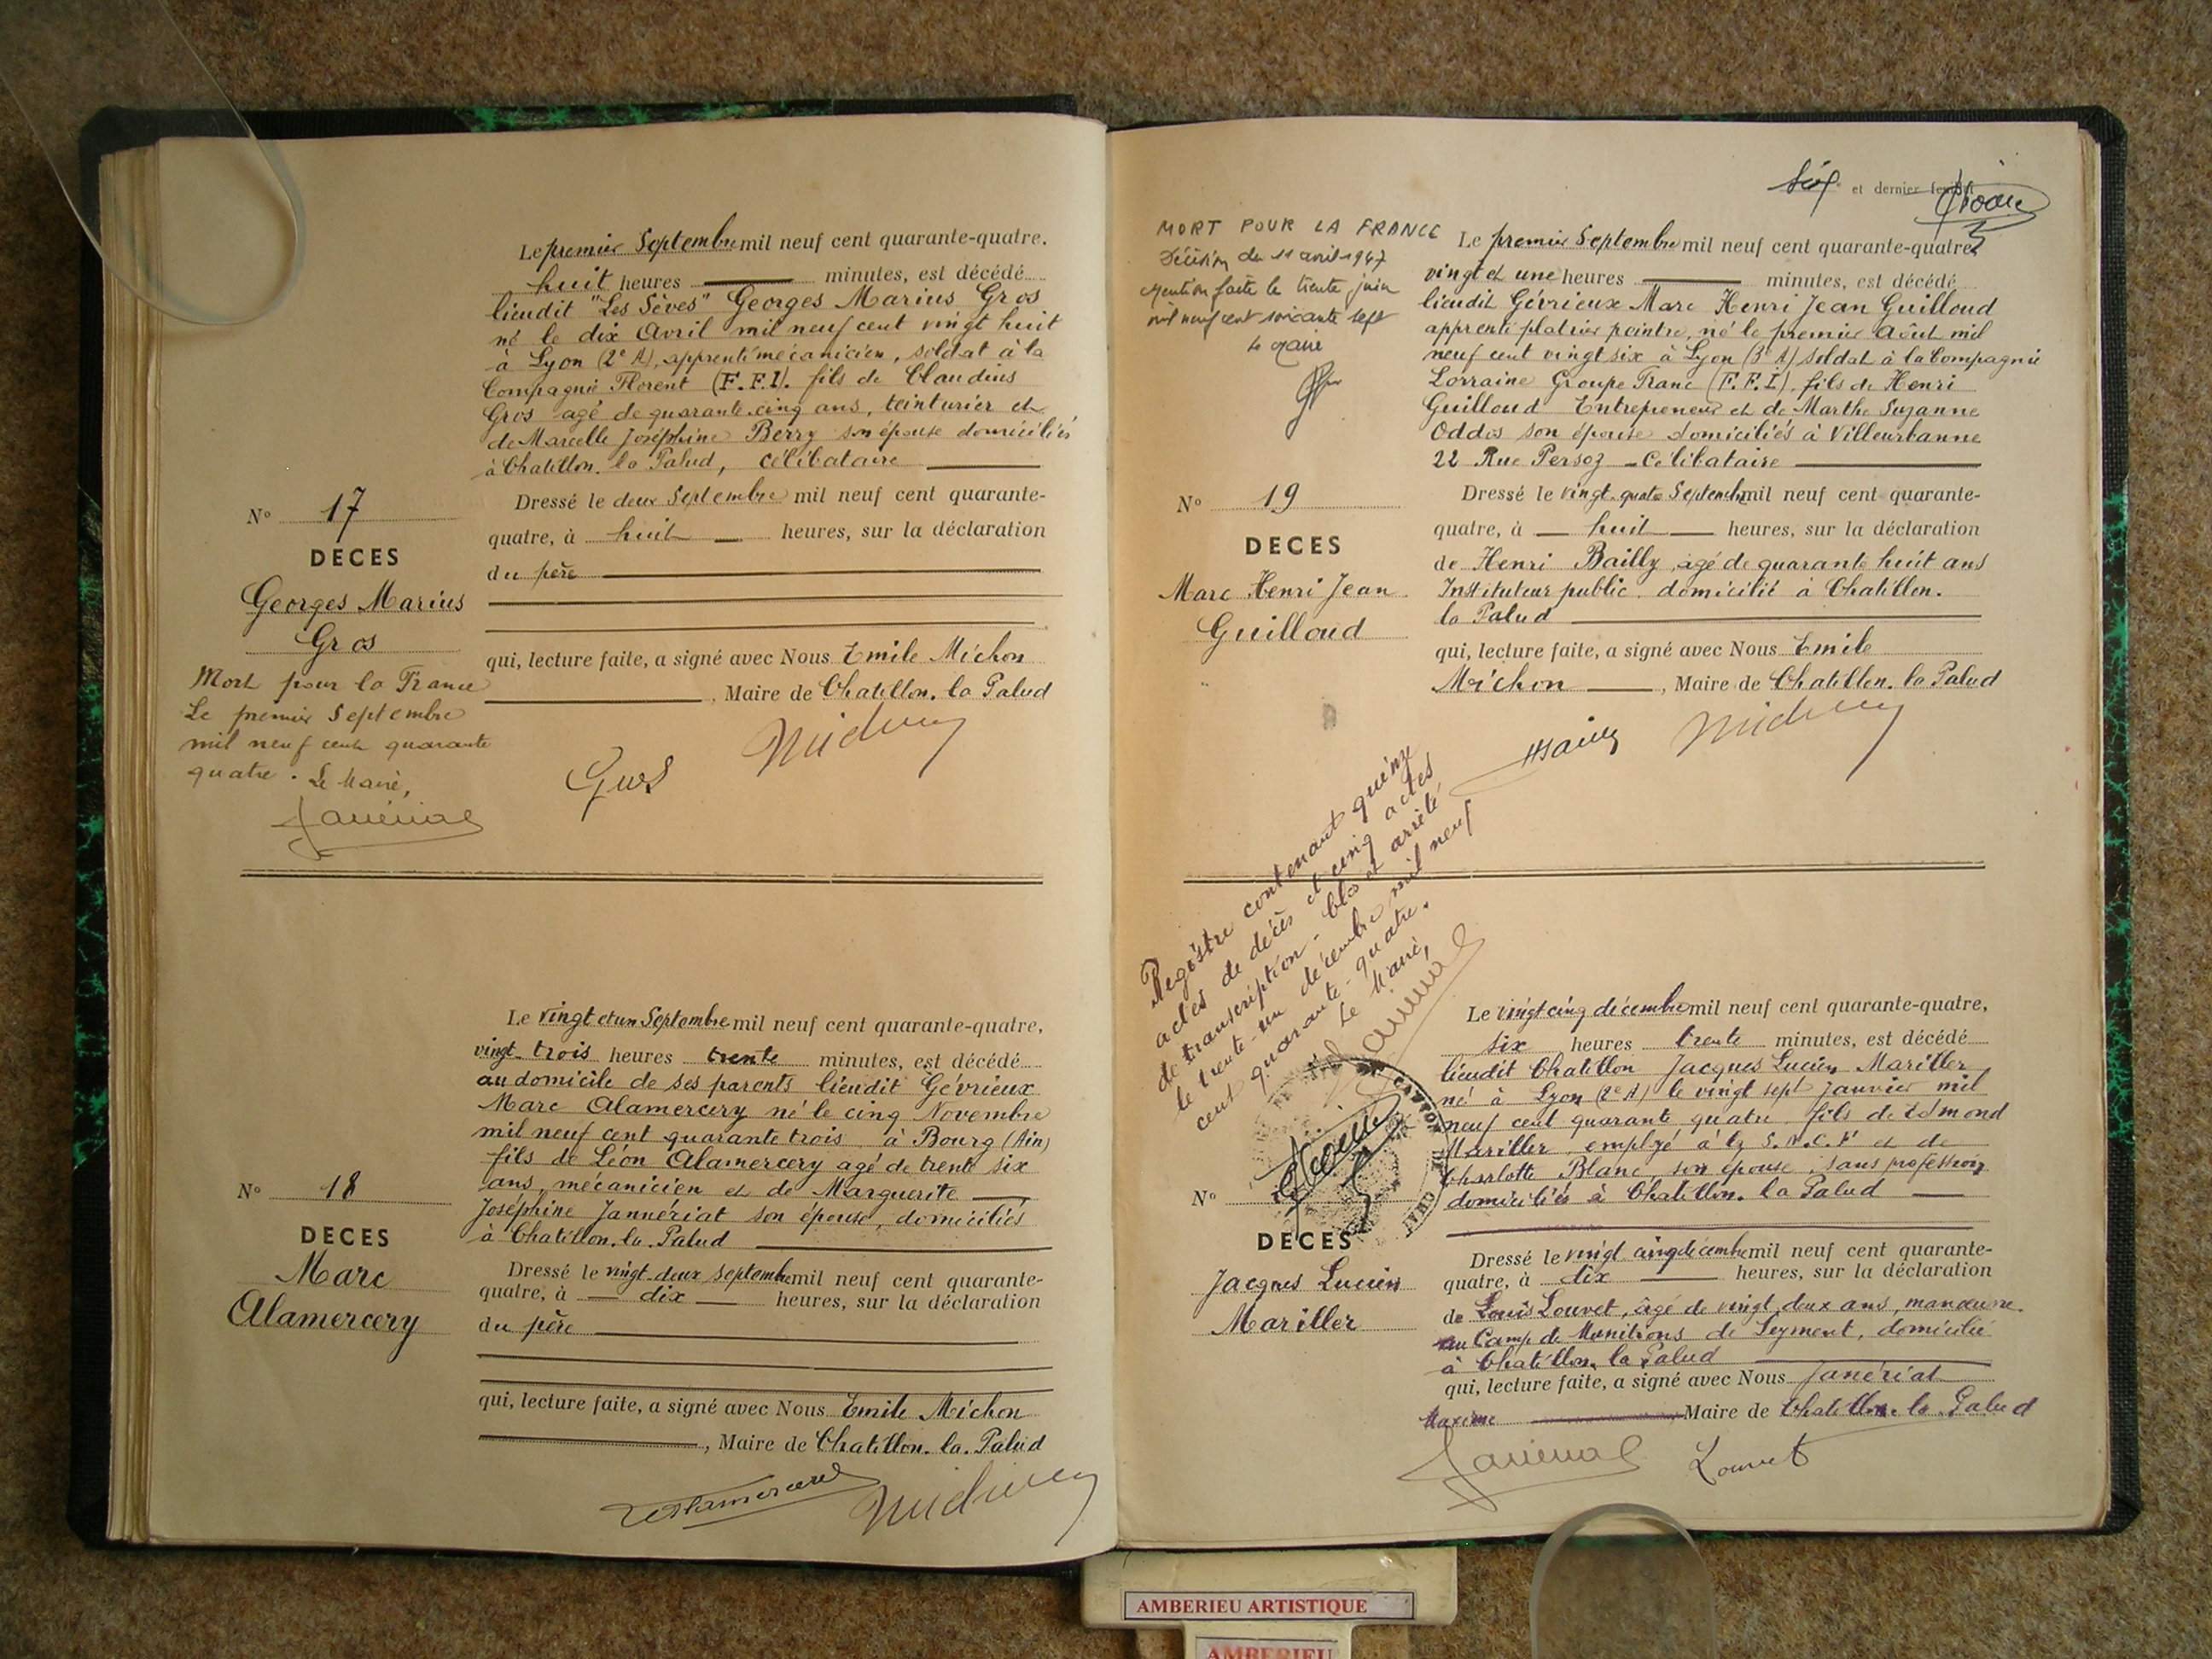 Le premier Septembre mil neuf cent quarante-quatre.
huit heures minutes, est décédé
lieudit "Les Sèves" Georges Marius Gros
né le dix Avril mil neuf cent vingt huit
à Lyon (2e A), apprenti mécanicien, soldat à la
Compagnie Florent (F.F.I). fils de Claudius
Gros agé de quarante cinq ans, teinturier et
de Marcelle Joséphine Berry son épouse domiciliés
à Chatillon. la Palud, célibataire
Dressé le deux Septembre mil neuf cent quarante-
quatre, à huit heures, sur la déclaration
du père
qui, lecture faite, a signé avec Nous Emile Michon
, Maire de Chatillon. la Palud
Gros
Michon
No 17
DECES
Georges Marius
Gros
Mort pour la France
Le premier Septembre
mil neuf cent quarante
quatre. Le Maire,
Le vingt et un Septembre mil neuf cent quarante-quatre,
vingt trois heures trente minutes, est décédé
au domicile de ses parents lieudit Gévrieux
Marc Alamercery né le cinq Novembre
mil neuf cent quarante trois à Bourg (Ain)
fils de Léon Alamercery agé de trente six
ans, mécanicien et de Marguerite
Joséphine Jannériat son épouse, domiciliés
à Chatillon. la. Palud
Dressé le vingt-deux septembre mil neuf cent quarante-
quatre, à dix heures, sur la déclaration
du père
qui, lecture faite, a signé avec Nous Emile Michon
, Maire de Chatillon. la. Palud
Michon
No 18
DECES
Marc
Alamercery
et dernier feuillet
MORT POUR LA FRANCE
Décision du 11 avril 1947
Mention faite le trente juin
mil neuf cent soixante sept
Le Maire
Le premier Septembre mil neuf cent quarante-quatre
vingt et une heures minutes, est décédé
lieudit Gévrieux Marc Henri Jean Guilloud
apprenti platrier peintre, né le premier Août mil
neuf cent vingt six à Lyon (3e A) soldat à la Compagnie
Lorraine Groupe Franc (F.F.I). fils de Henri
Guilloud Entrepreneur et de Marthe Suzanne
Oddos son épouse domiciliés à Villeurbanne
22 Rue Persoz - Célibataire
Dressé le vingt. quatre Septembre mil neuf cent quarante-
quatre, à huit heures, sur la déclaration
de Henri Bailly, agé de quarante huit ans
Instituteur public. domicilié à Chatillon.
la Palud
qui, lecture faite, a signé avec Nous Emile
Michon , Maire de Chatillon. la Palud
HBailly
Michon
No 19
DECES
Marc Henri Jean
Guilloud
Registre contenant quinze
actes de décès et cinq actes
de transcription - Clos et arrêté
le trente-un décembre mil neuf
cent quarante-quatre.
Le Maire,
Le vingt cinq décembre mil neuf cent quarante-quatre,
six heures trente minutes, est décédé
lieudit Chatillon Jacques Lucien Mariller
né à Lyon (2e A) le vingt sept Janvier mil
neuf cent quarante quatre fils de Edmond
Mariller employé à la S.N.C.F et de
Charlotte Blanc, son épouse, sans profession
domiciliés à Chatillon. la Palud
Dressé le vingt cinq décembre mil neuf cent quarante-
quatre, à dix heures, sur la déclaration
de Louis Louvet, âgé de vingt deux ans, manœuvre
au Camp de Munitions de Leyment, domicilié
à Chatillon. la Palud
qui, lecture faite, a signé avec Nous Janériat
Maxime Maire de Chatillon la Palud
Louvet
No
DECES
Jacques Lucien
Mariller
AMBERIEU ARTISTIQUE
AMBERIEU